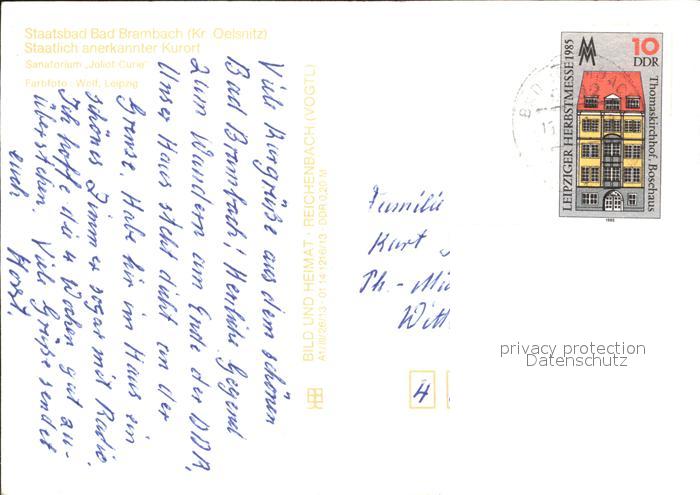 Staatsbad Bad Brambach (Kr. Oelsnitz)
Staatlich anerkannter Kurort
Sanatorium „Joliot Curie"
Farbfoto: Wolf, Leipzig
Viele Kurgrüße aus dem schönen
Bad Brambach! Herrliche Gegend
zum Wandern am Ende der DDR,
Unser Haus steht dicht an der
Grenze. Habe hir im Haus ein
schönes Zimmer sogar mit Radio.
Ich hoffe die 4 Wochen gut zu-
überstein. Viele Grüße sendet
euch Horst.
BILD UND HEIMAT · REICHENBACH (VOGTL)
A1/III/26/13 · 01 14 1216/13 · DDR 0,20 M
Familie
Kurt
Th.-Mü
Witt
4
10
DDR
LEIPZIGER HERBSTMESSE 1985
Thomaskirchhof, Bosehaus
1985
privacy protection
Datenschutz